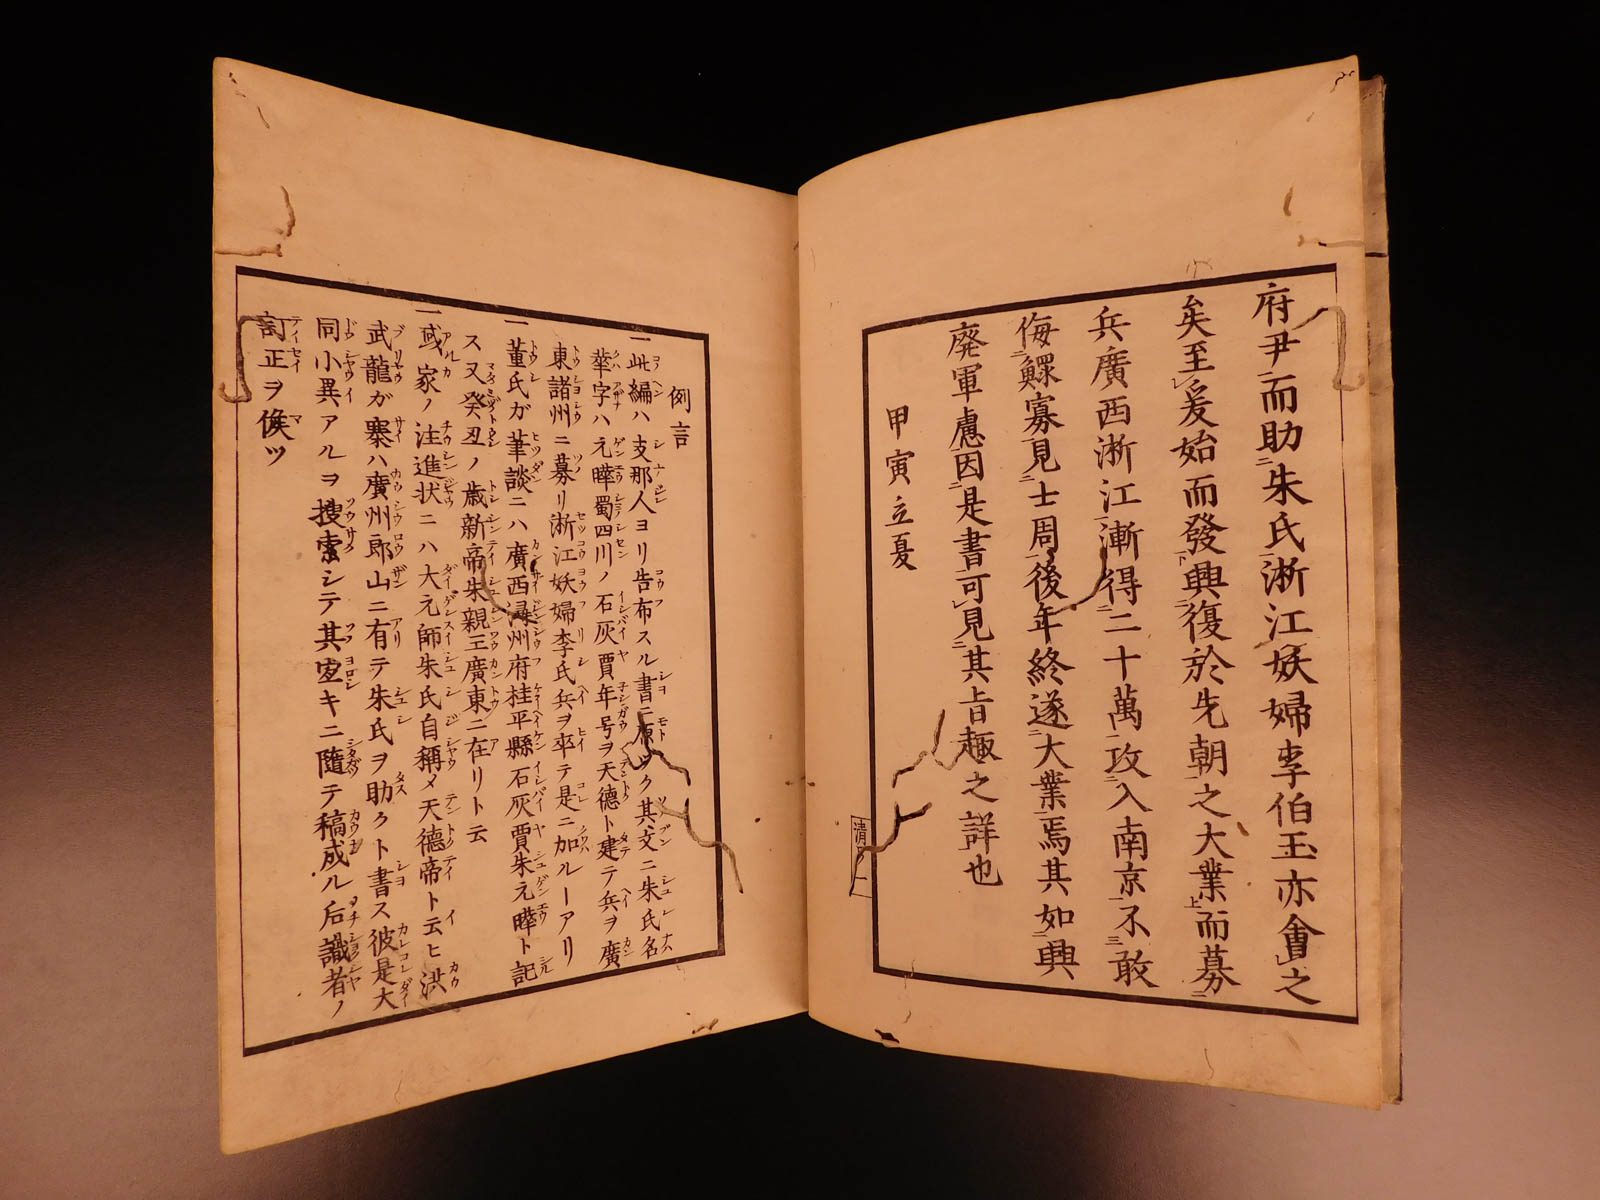 府尹而助朱氏浙江妖婦李伯玉亦會之
矣至爰始而發興復於先朝之大業而募
兵廣西浙江漸得二十萬攻入南京不敢
侮鰥寡見士周後年終遂大業焉其如興
廃軍慮因是書可見其旨趣之詳也
甲寅立夏
清 二
例言
一此編ハ支那人ヨリ告布スル書ニ原ヅク其文ニ朱氏名
華字ハ元曄蜀四川ノ石灰賈年号ヲ天德ト建テ兵ヲ廣
東諸州ニ募リ浙江妖婦李氏兵ヲ卒テ是ニ加ルーアリ
一董氏ガ筆談ニハ廣西潯州府桂平縣石灰賈朱元曄ト記
ス又癸丑ノ歳新帝朱親王廣東ニ在リト云
一或家ノ注進状ニハ大元師朱氏自稱メ天德帝ト云ヒ洪
武龍ガ寨ハ廣州郎山ニ有テ朱氏ヲ助クト書ス彼是大
同小異アルヲ搜索シテ其宜キニ隨テ稿成ル后識者ノ
訂正ヲ俟ツ